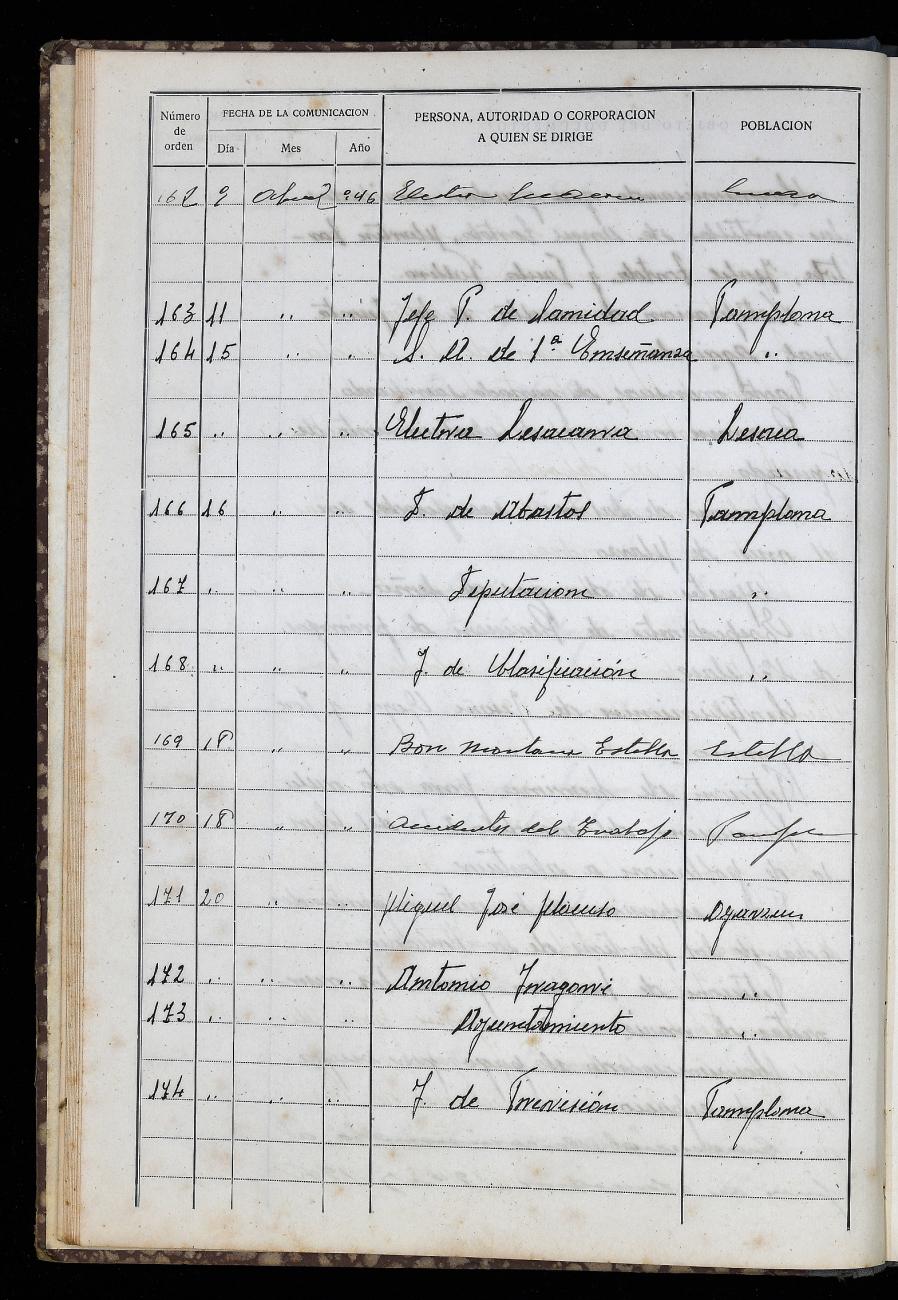 Número de orden FECHA DE LA COMUNICACION PERSONA, AUTORIDAD O CORPORACION A QUIEN SE DIRIGE POBLACION
Día Mes Año
162 9 Abril 946 Electra Lesacana Lesaca
163 11 .. .. Jefe P. de Sanidad Pamplona
164 15 .. .. de 1ª Enseñanza ..
165 .. .. .. Electra Lesacana Lesaca
166 16 .. .. de Abastos Pamplona
167 .. .. .. Diputacion ..
168 .. .. .. J. de Clasificación ..
169 18 .. .. Bon Montana Estella Estella
170 18 .. .. Accidentes del Trabajo Pampl
171 20 .. .. Miguel José Oyarzun
172 .. .. .. Antonio ..
173 .. .. .. Ayuntamiento ..
174 .. .. .. J. de Previsión Pamplona